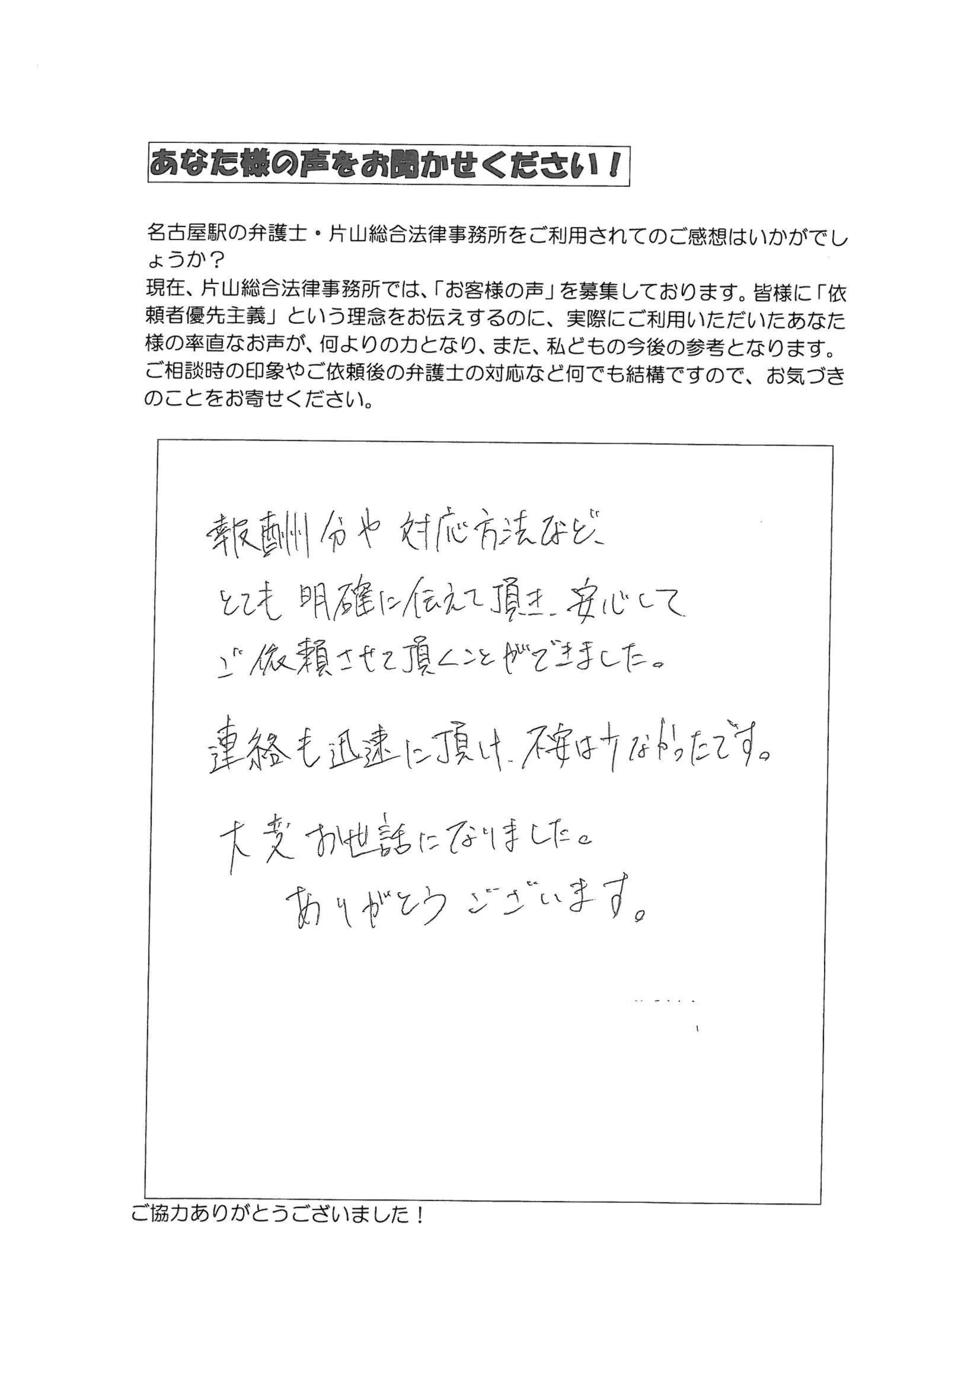 あなた様の声をお聞かせください！
名古屋駅の弁護士・片山総合法律事務所をご利用されてのご感想はいかがでし
ょうか？
現在、片山総合法律事務所では、「お客様の声」を募集しております。皆様に「依
頼者優先主義」という理念をお伝えするのに、実際にご利用いただいたあなた
様の率直なお声が、何よりの力となり、また、私どもの今後の参考となります。
ご相談時の印象やご依頼後の弁護士の対応など何でも結構ですので、お気づき
のことをお寄せください。
報酬分や対応方法など、
とても明確に伝えて頂き、安心して
ご依頼させて頂くことができました。
連絡も迅速に頂け、不安は少なかったです。
大変お世話になりました。
ありがとうございます。
ご協力ありがとうございました！